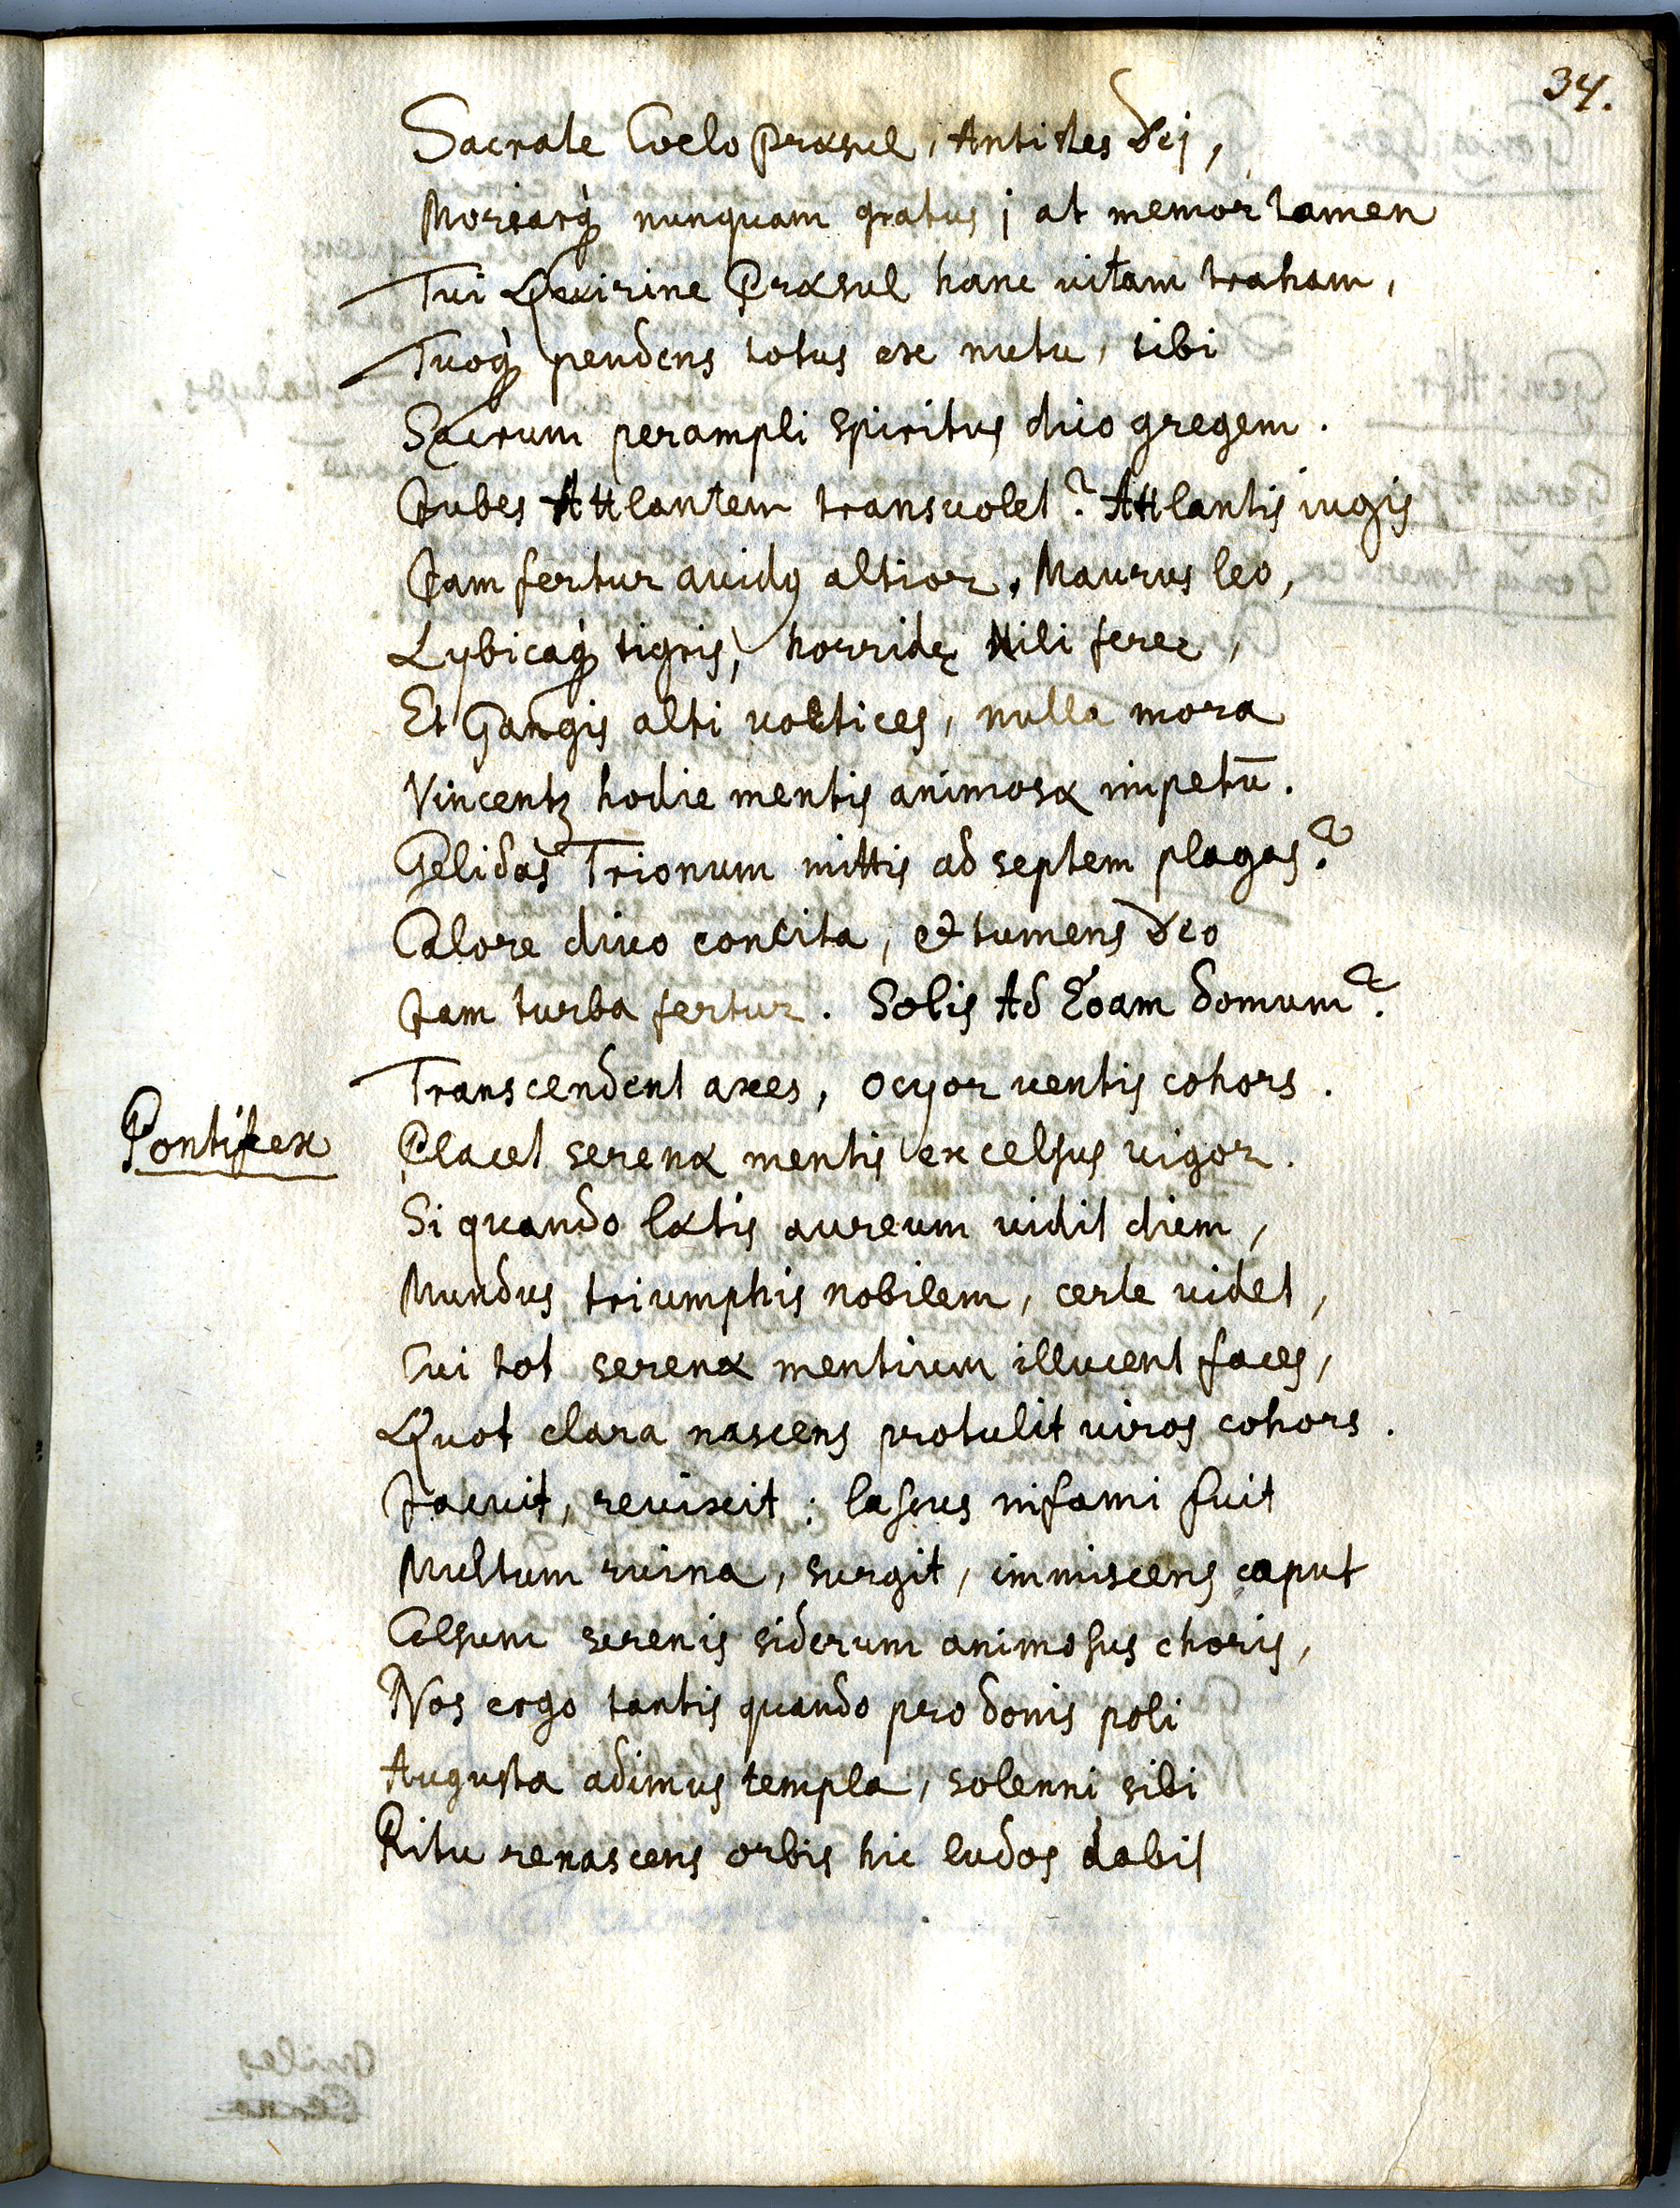 34.
Sacrate Coelo præsul, Antistes Dej,
Moriarq; nunquam gratus; at memor tamen
Tui Quirine Præsul hanc vitam traham,
Tuoq; pendens totus ex nutu, tibi
Sacrum perampli spiritus duco gregem.
Jubes Attlantem transvolet? Attlantis iugis
Jam fertur avidus altior. Maurus leo,
Lybicaq; tigris, horridę Nili ferę,
Et Gangis alti vortices, nulla mora
Vincent; hodie mentis animosæ impetū.
Gelidas Trionum mittis ad septem plagas?
Calore divo concita, et tumens Deo
Jam turba fertur. Solis Ad Eoam domum?
Transcendent axes, ocyor ventis cohors.
Pontifex Placet serenæ mentis excelsus vigor.
Si quando lætis aureum vidit diem,
Mundus triumphis nobilem, certe videt,
Cui tot serenæ mentium illucent faces,
Quot clara nascens protulit viros cohors.
Jacuit, revixit; lassus infami fuit
Multum ruina, surgit, immiscens caput
Celsum serenis siderum animosus choris,
Nos ergo tantis quando pro donis poli
Augusta adimus templa, solenni sibi
Ritu renascens orbis hic ludos dabit